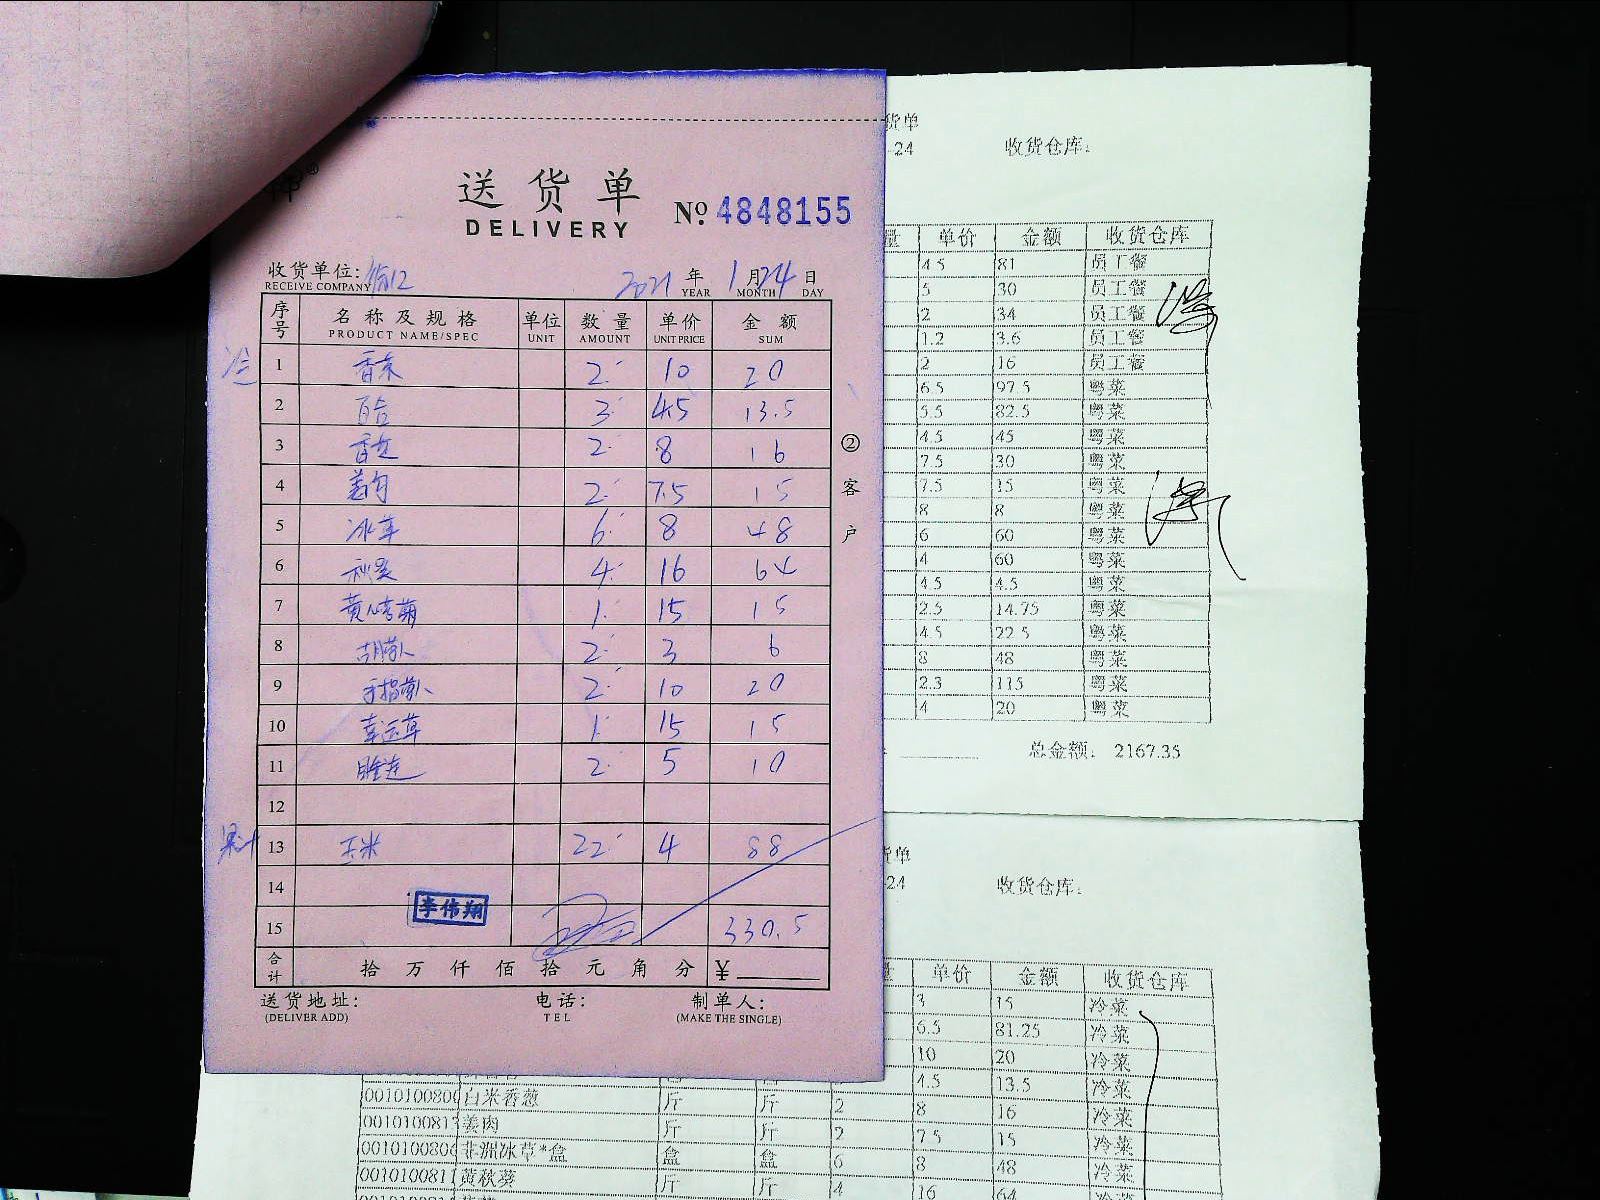 送货单
DELIVERY
№ 4848155
收货单位:
RECEIVE COMPANY
2021 年 1 月 24 日
YEAR MONTH DAY
序号 名称及规格 单位 数量 单价 金额
PRODUCT NAME/SPEC UNIT AMOUNT UNIT PRICE SUM
1 香菜 2 10 20
2 百合 3 4.5 13.5
3 香葱 2 8 16
4 姜肉 2 7.5 15
5 冰草 6 8 48
6 秋葵 4 16 64
7 黄心 菊 1 15 15
8 胡萝卜 2 3 6
9 手指萝卜 2 10 20
10 幸运草 1 15 15
11 2 5 10
12
13 玉米 22 4 88
14
李伟翔
15 330.5
合计 拾 万 仟 佰 拾 元 角 分 ¥
送货地址: 电话: 制单人:
(DELIVER ADD) TEL (MAKE THE SINGLE)
②客户
货单
-24 收货仓库:
量 单价 金额 收货仓库
4.5 81 员工餐
5 30 员工餐
2 34 员工餐
1.2 3.6 员工餐
2 16 员工餐
6.5 97.5 粤菜
5.5 82.5 粤菜
4.5 45 粤菜
7.5 30 粤菜
7.5 15 粤菜
8 8 粤菜
6 60 粤菜
4 60 粤菜
4.5 4.5 粤菜
2.5 14.75 粤菜
4.5 22.5 粤菜
8 48 粤菜
2.3 115 粤菜
4 20 粤菜
总金额: 2167.35
货单
-24 收货仓库:
量 单价 金额 收货仓库
3 15 冷菜
6.5 81.25 冷菜
10 20 冷菜
4.5 13.5 冷菜
0010100800 白米香葱 斤 斤 2 8 16 冷菜
001010081 姜肉 斤 斤 2 7.5 15 冷菜
001010080 非洲冰草*盒 盒 盒 6 8 48 冷菜
001010081 黄秋葵 斤 斤 4 16 64 冷菜